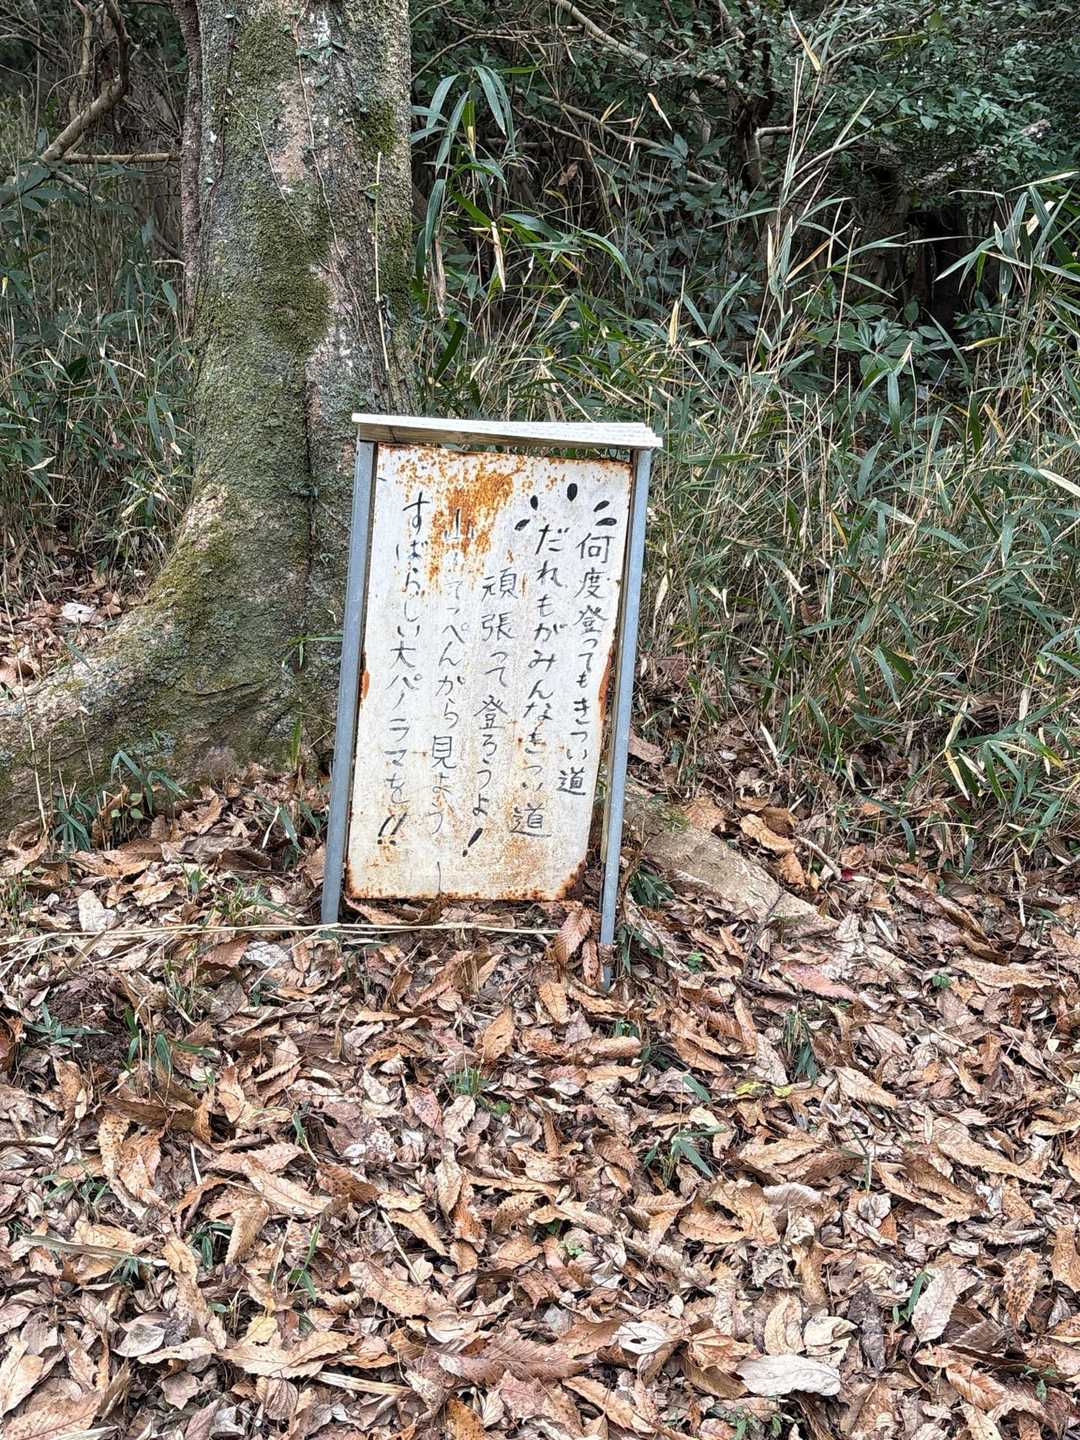 何度登ってもきつい道
だれもがみんなきつい道
頑張って登ろうよ!
山 てっぺんから見よう
すばらしい大パノラマを!!